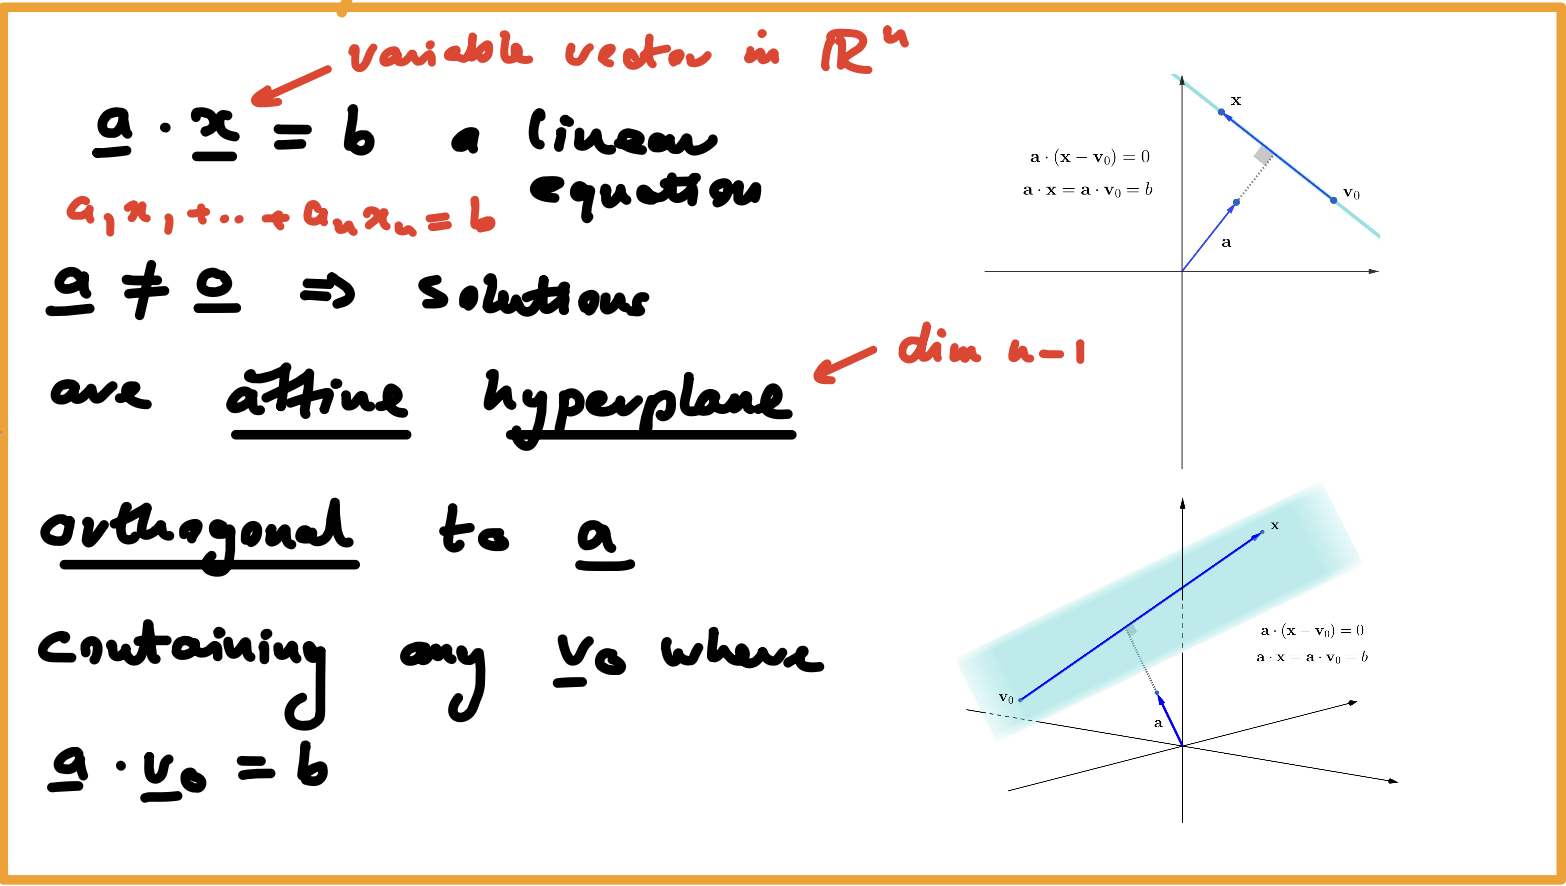 variable vector in ℝⁿ
a · x = b a linear
equation
a₁x₁ + .. + aₙxₙ = b
a ≠ 0 ⇒ solutions
are affine hyperplane
dim n-1
orthogonal to a
containing any v₀ where
a · v₀ = b
x
a · (x − v₀) = 0
a · x = a · v₀ = b
v₀
a
x
a · (x − v₀) = 0
a · x = a · v₀ = b
v₀
a